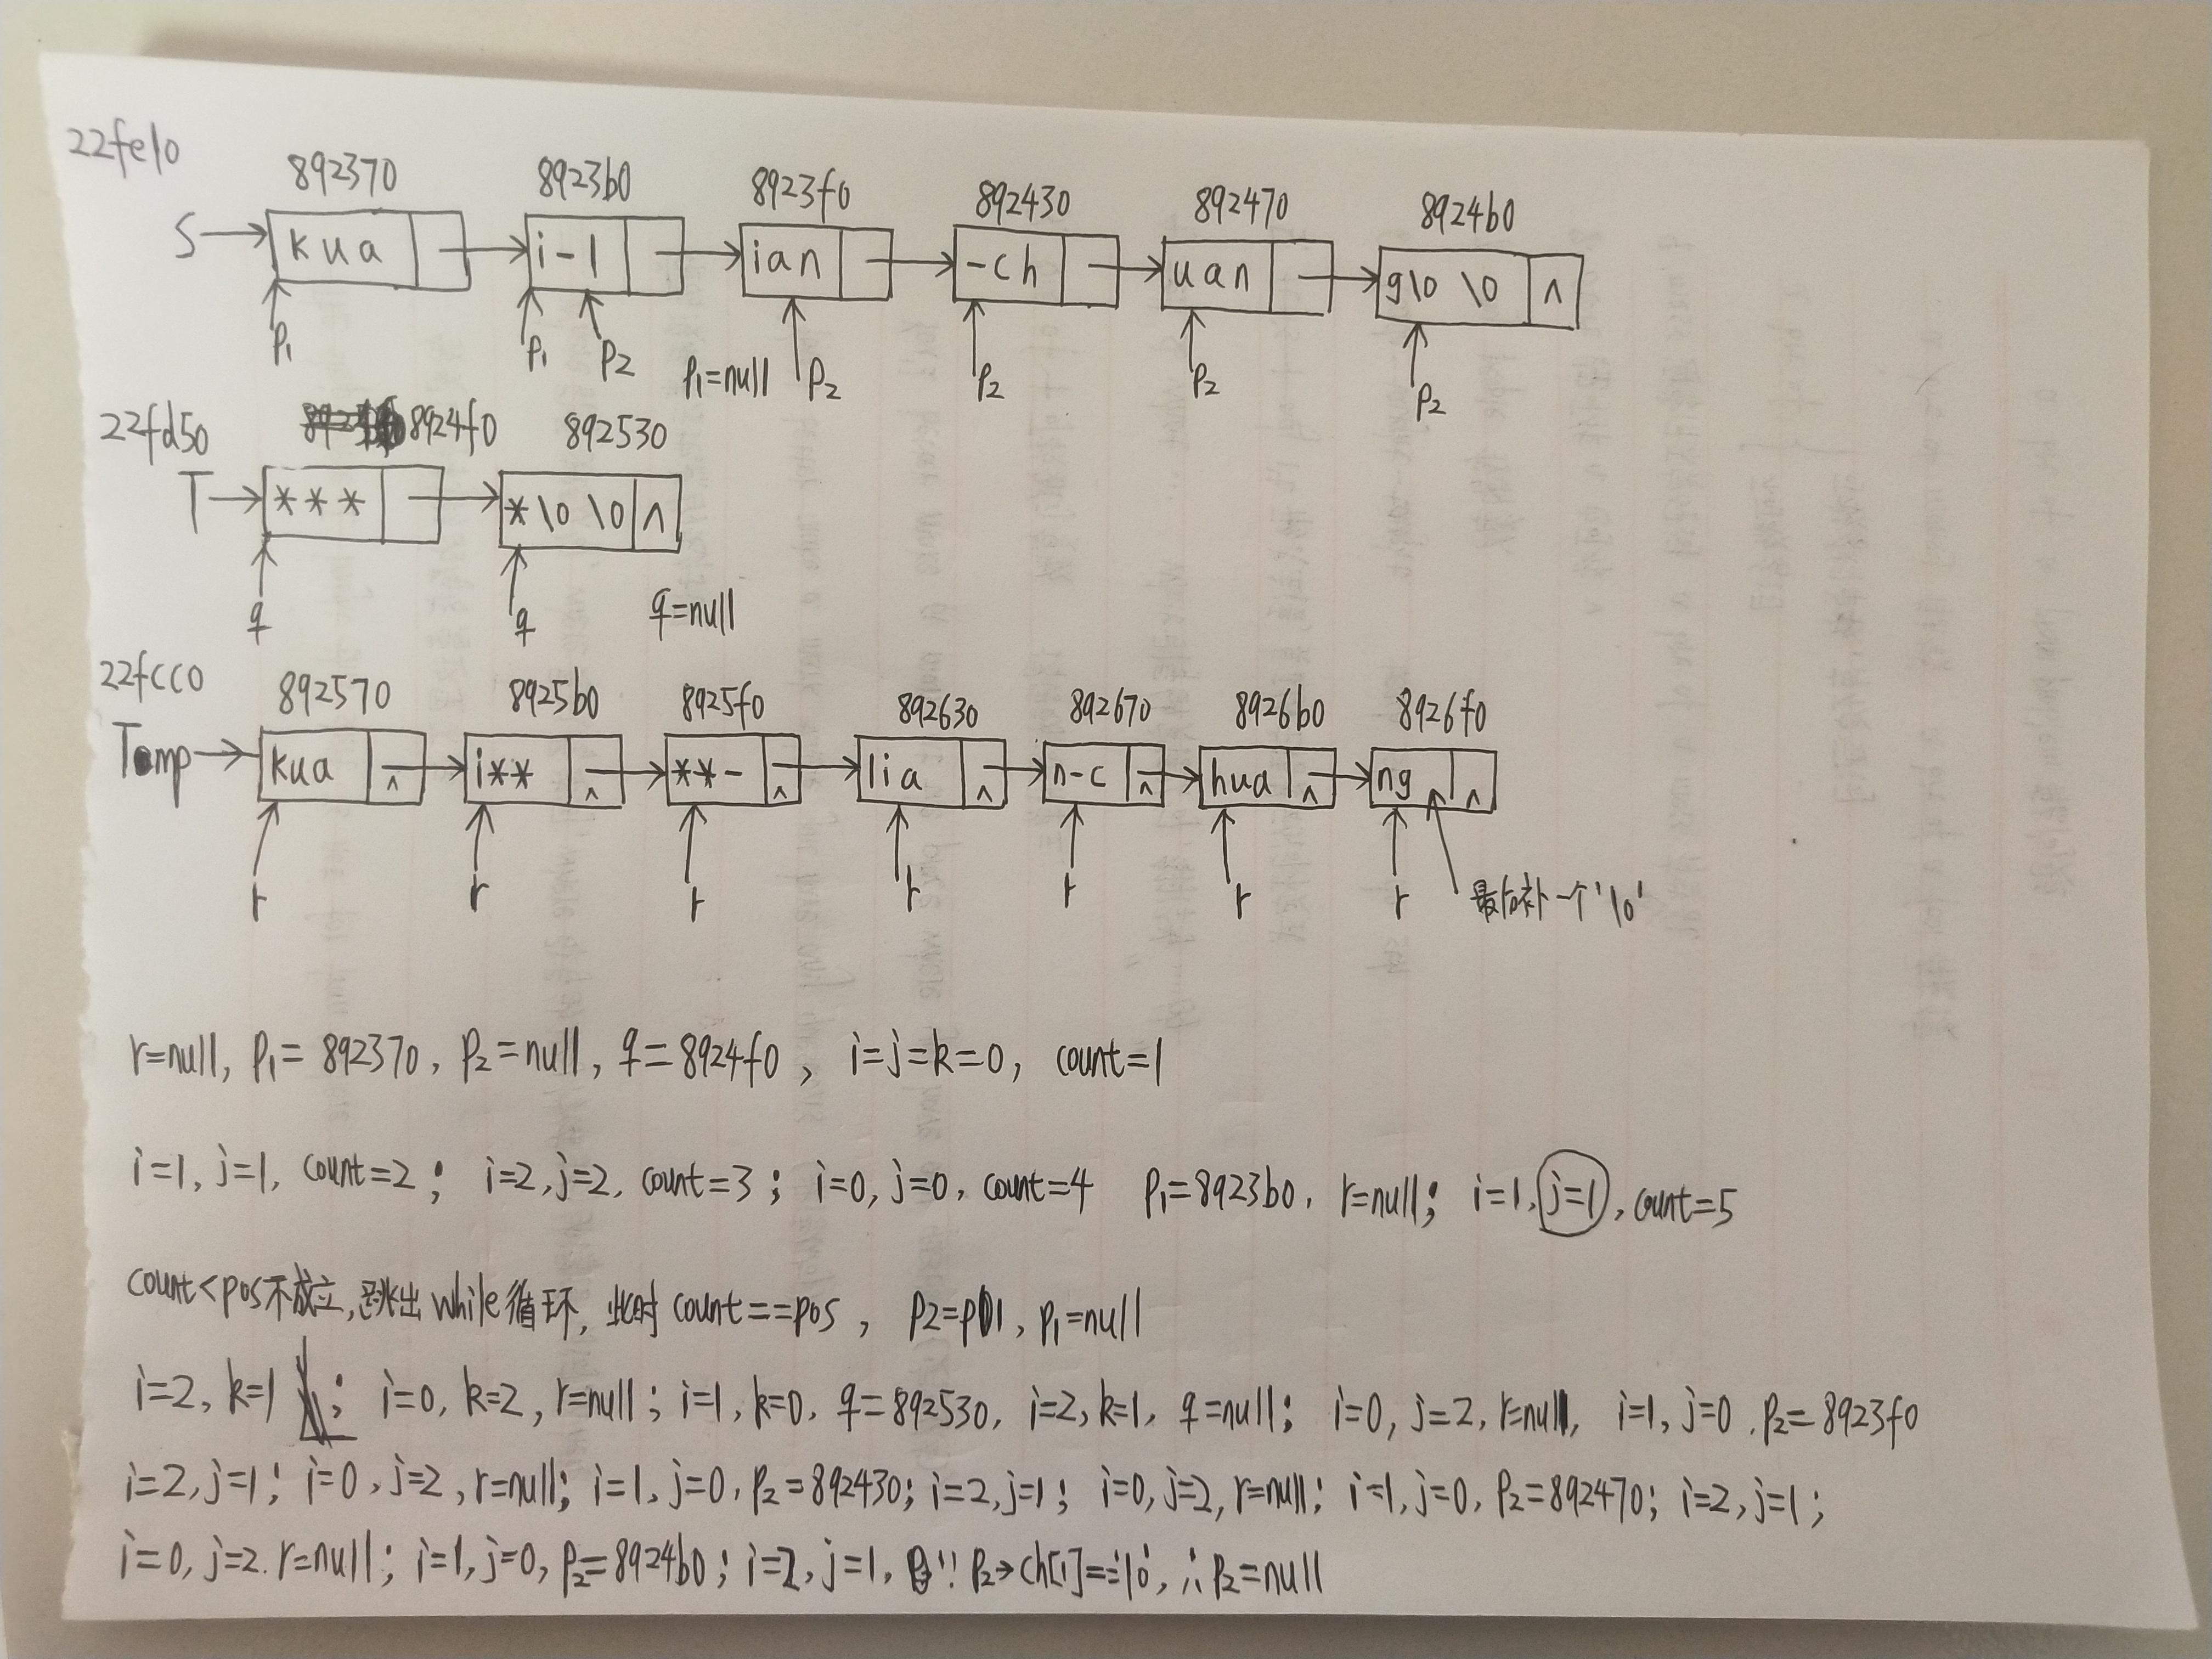 22fe10
892370 8923b0 8923f0 892430 892470 8924b0
S kua i-l ian -ch uan g\0 \0 ∧
p₁ p₁ p₂ p₁=null p₂ p₂ p₂ p₂
22fd50 8924f0 892530
T *** *\0 \0 ∧
q q q=null
22fcc0 892570 8925b0 8925f0 892630 892670 8926b0 8926f0
Temp kua ∧ i** ∧ **- ∧ lia ∧ n-c ∧ hua ∧ ng ∧
r r r r r r r 最后补一个'\0'
r=null, p₁= 892370, p₂=null, q=8924f0, i=j=k=0, count=1
i=1, j=1, count=2; i=2, j=2, count=3; i=0, j=0, count=4 p₁=8923b0, r=null; i=1, j=1, count=5
count<pos不成立,跳出while循环, 此时count==pos, p2=p1, p₁=null
i=2, k=1; i=0, k=2, r=null; i=1, k=0, q=892530, i=2, k=1, q=null; i=0, j=2, r=null, i=1, j=0, p₂=8923f0
i=2, j=1; i=0, j=2, r=null; i=1, j=0, p₂=892430; i=2, j=1; i=0, j=2, r=null; i=1, j=0, p₂=892470; i=2, j=1;
i=0, j=2. r=null; i=1, j=0, p₂=8924b0; i=2, j=1, ∵ p₂→ch[1]=='\0', ∴p₂=null